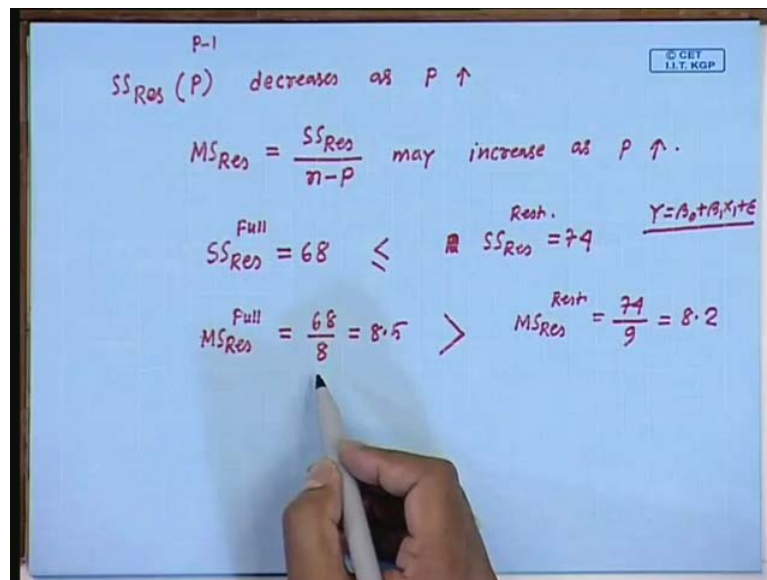 P-1
© CET
I.I.T. KGP
SS_Res (P) decreases as P ↑
MS_Res = SS_Res / n-P may increase as P ↑.
SS_Res^Full = 68 ≤ SS_Res^Rest. = 74 Y=β₀+β₁X₁+ε
MS_Res^Full = 68/8 = 8.5 > MS_Res^Rest = 74/9 = 8.2